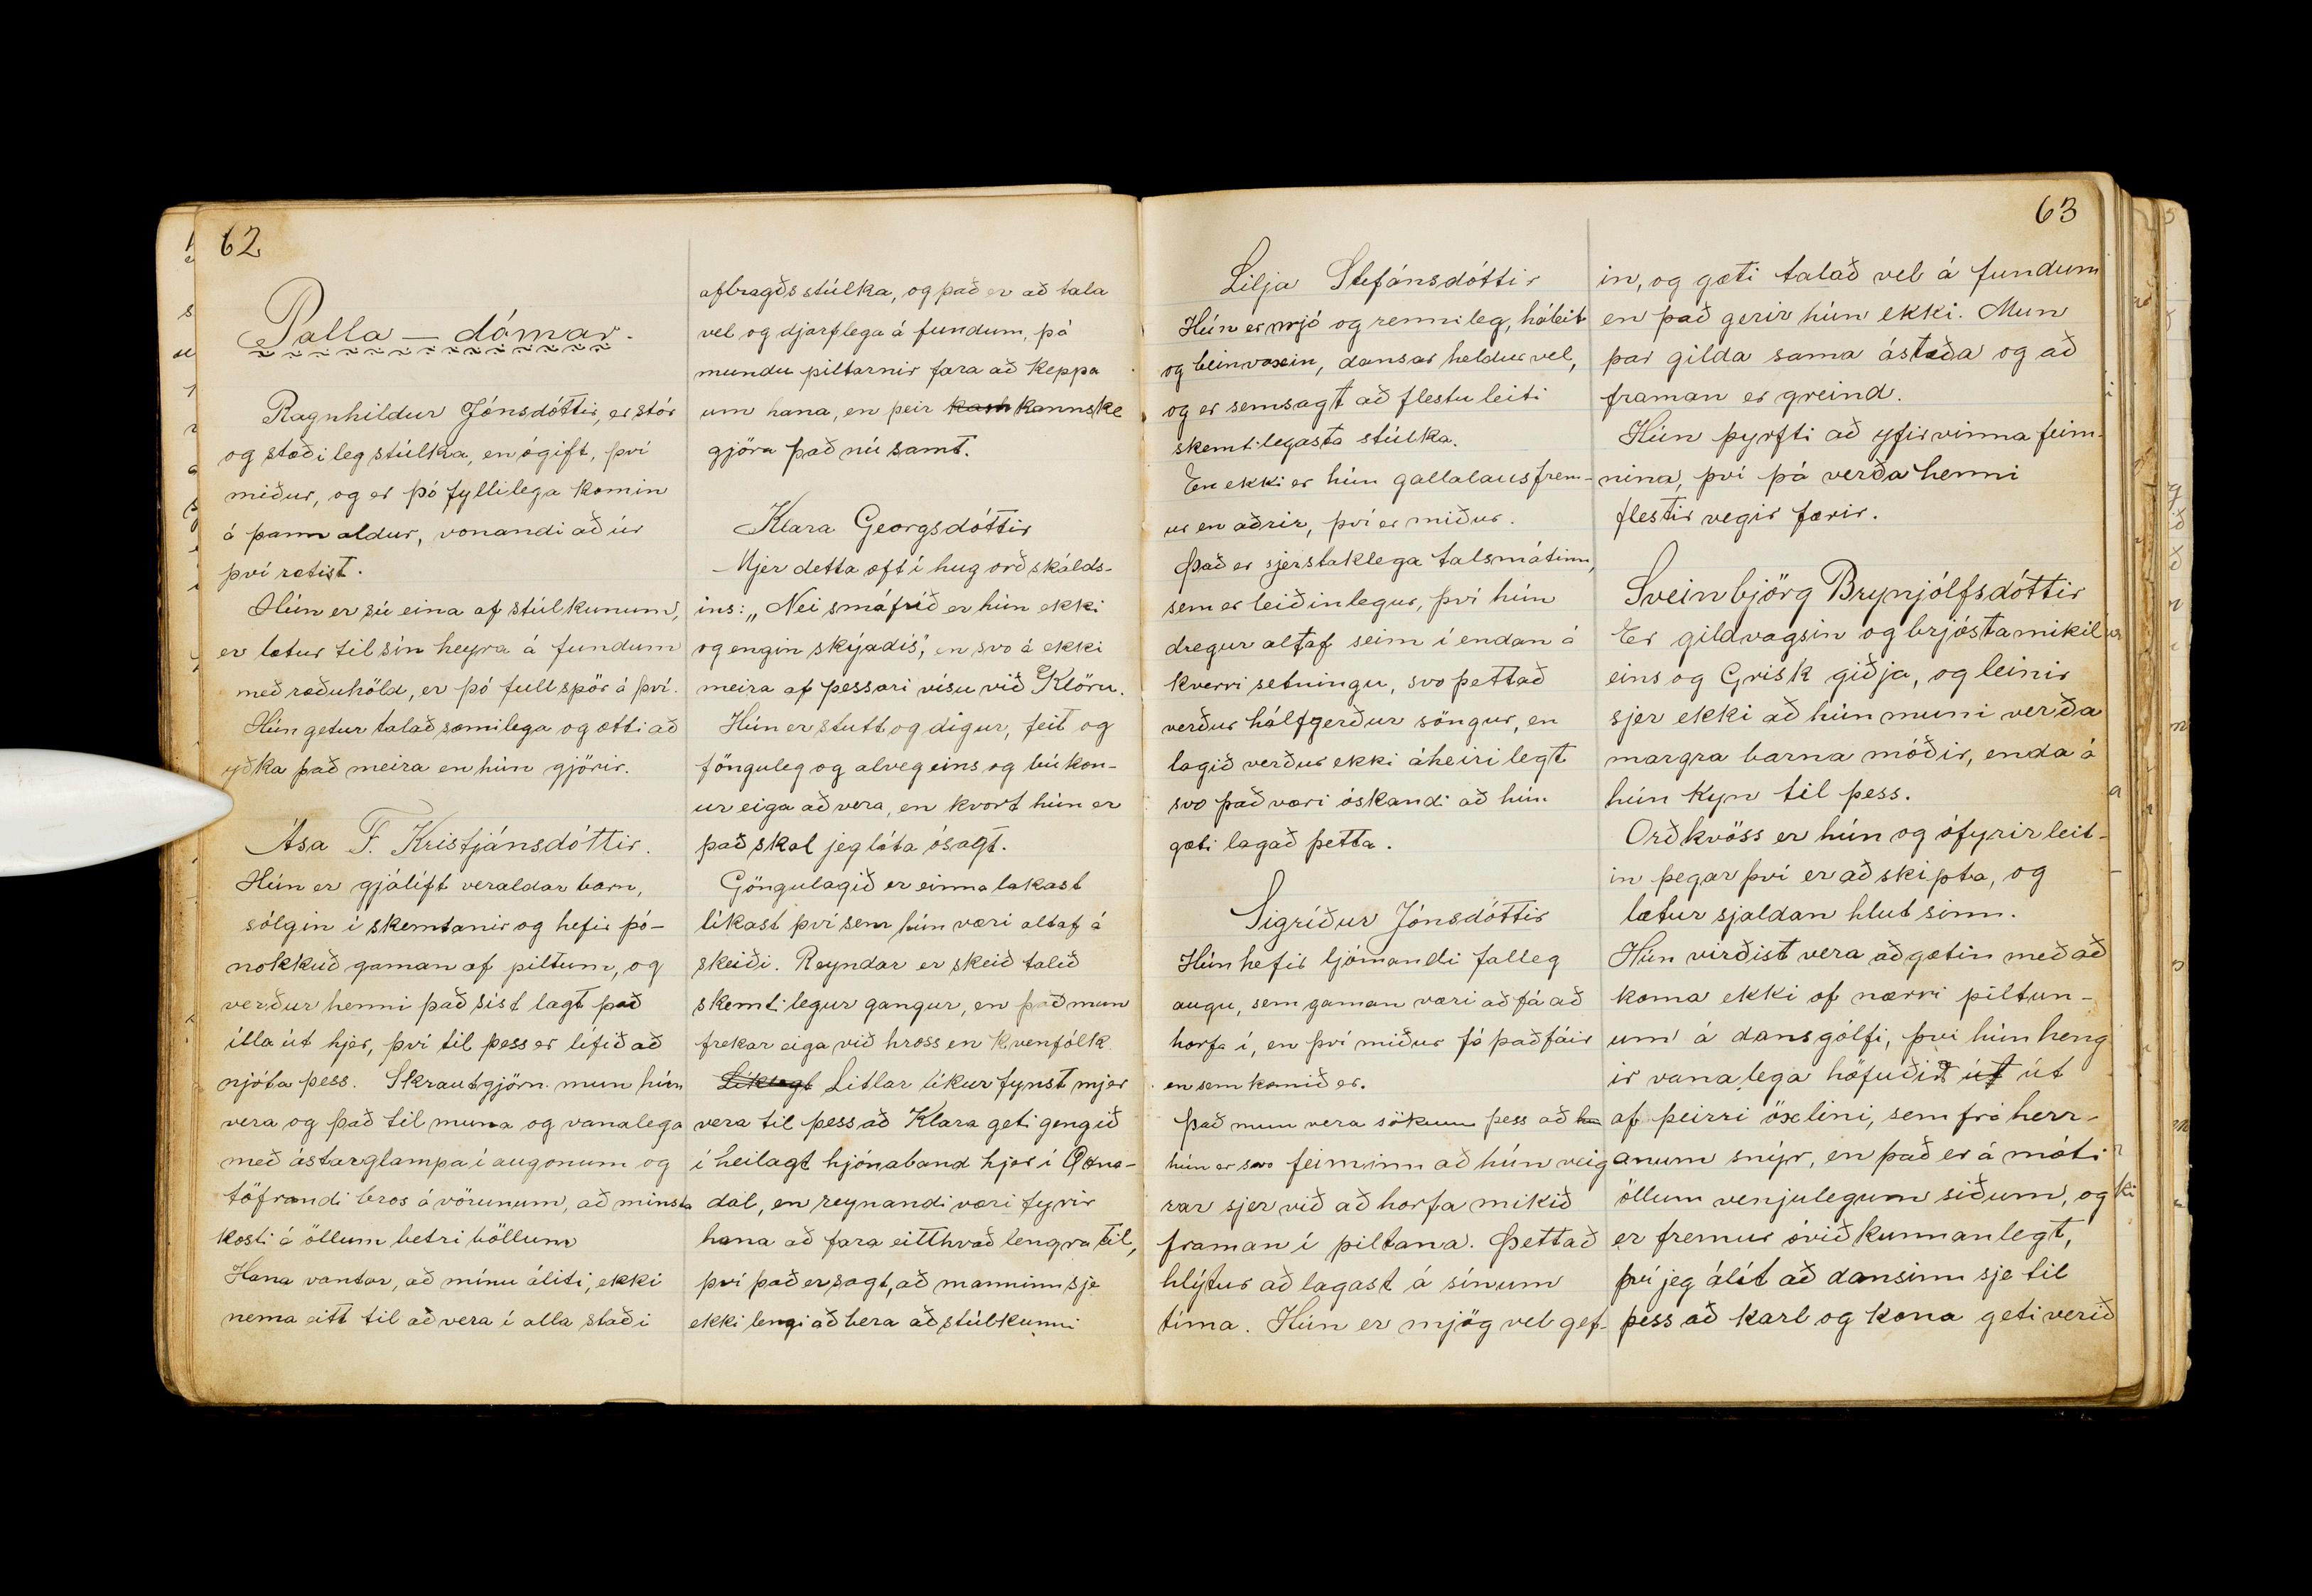 62
Palla — dómar.
Ragnhildur Jónsdóttir, er stór
og stæðileg stúlka, en ógift, því
miður, og er þó fyllilega komin
á þann aldur, vonandi að úr
því rætist.
Hún er sú eina af stúlkunum,
er lætur til sín heyra á fundum
með ræðuhöld, er þó full spör á því.
Hún getur talað sæmilega og ætti að
yðka það meira en hún gjörir.
Ása F. Kristjánsdóttir.
Hún er gjálíft veraldar barn,
sólgin í skemtanir og hefir þó-
nokkuð gaman af piltum, og
verður henni það síst lagt það
illa út hjer, því til þess er lífið að
njóta þess. Skrautgjörn mun hún
vera og það til muna og vanalega
með ástarglampa í augonum og
töfrandi bros á vörunum, að minsta
kosti á öllum betri böllum
Hana vantar, að mínu áliti, ekki
nema eitt til að vera í alla staði
afbragðs stúlka, og það er að tala
vel og djarflega á fundum, þá
mundu piltarnir fara að keppa
um hana, en þeir kash kannske
gjöra það nú samt.
Klara Georgsdóttir
Mjer detta oft í hug orð skálds-
ins: „Nei smáfríð er hún ekki
og engin skýjadís", en svo á ekki
meira af þessari vísu við Klöru.
Hún er stutt og digur, feit og
fönguleg og alveg eins og búkon-
ur eiga að vera, en kvort hún er
það skal jeg láta ósagt.
Göngulagið er einna lakast
líkast því sem hún væri altaf á
skeiði. Reyndar er skeið talið
skemtilegur gangur, en það mun
frekar eiga við hross en kvenfólk.
Líklegt Litlar líkur fynst mjer
vera til þess að Klara geti gengið
í heilagt hjónaband hjer í Öxna-
dal, en reynandi væri fyrir
hana að fara eitthvað lengra til,
því það er sagt, að manninn sje
ekki lengi að bera að stúlkunni
63
Lilja Stefánsdóttir
Hún er mjó og rennileg, háleit
og beinvaxin, dansar heldur vel,
og er semsagt að flestu leiti
skemtilegasta stúlka.
En ekki er hún gallalaus frem-
ur en aðrir, því er miður.
Það er sjerstaklega talsmátinn,
sem er leiðinlegur, því hún
dregur altaf seim í endan á
kverri setningu, svo þettað
verður hálfgerður söngur, en
lagið verður ekki áheirilegt
svo það væri óskandi að hún
gæti lagað þetta.
Sigríður Jónsdóttir
Hún hefir ljómandi falleg
augu, sem gaman væri að fá að
horfa í, en því miður fá það fáir
en sem komið er.
Það mun vera sökum þess að hun
hún er svo feiminn að hún veig
rar sjer við að horfa mikið
framan í piltana. Þettað
hlýtur að lagast á sínum
tíma. Hún er mjög vel gef-
in, og gæti talað vel á fundum
en það gerir hún ekki. Mun
þar gilda sama ástæða og að
framan er greind.
Hún þyrfti að yfirvinna feim-
nina, því þá verða henni
flestir vegir færir.
Sveinbjörg Brynjólfsdóttir
Er gildvagsin og brjóstamikil
eins og Grisk giðja, og leinir
sjer ekki að hún muni verða
margra barna móðir, enda á
hún kyn til þess.
Orðkvöss er hún og ófyrirleit-
in þegar því er að skipta, og
lætur sjaldan hlut sinn.
Hún virðist vera aðgætin með að
koma ekki of nærri piltun-
um á dansgólfi, því hún heng
ir vanalega höfuðið út út
af þeirri öxlini, sem frá herr-
anum snýr, en það er á móti
öllum venjulegum siðum, og
er fremur óviðkunnanlegt,
því jeg álít að dansinn sje til
þess að karl og kona geti verið